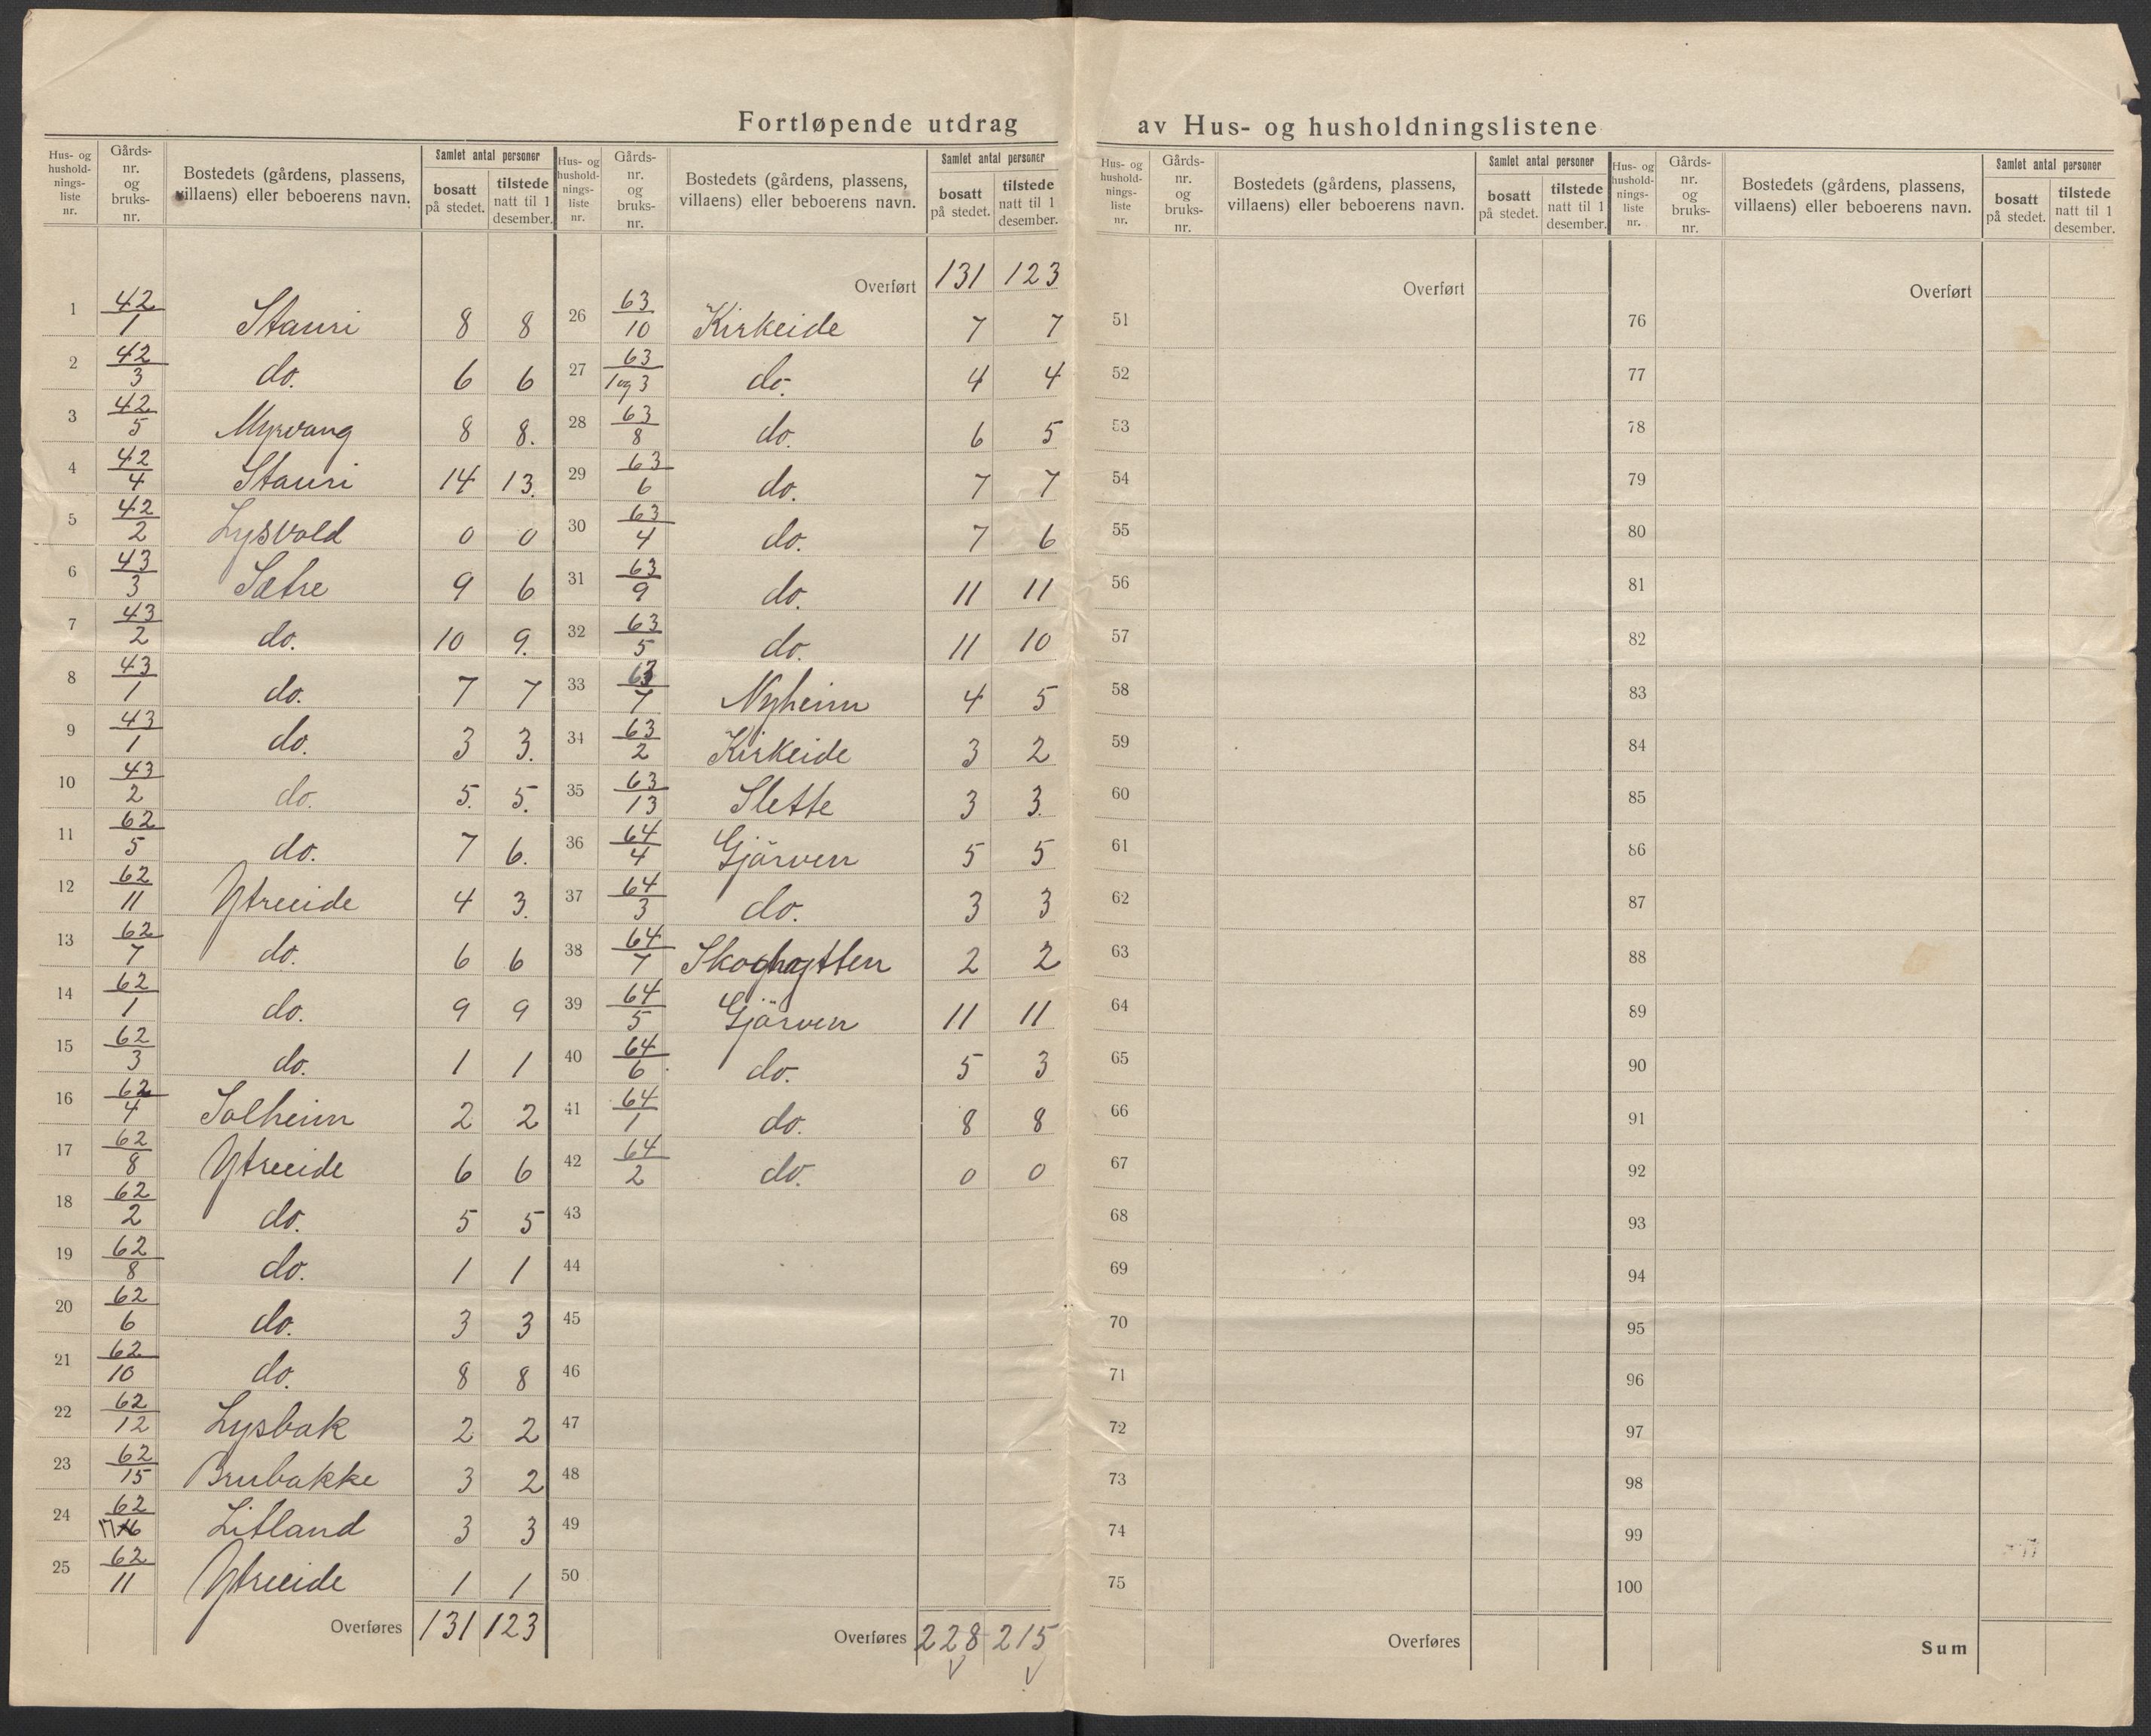 Fortløpende utdrag av Hus- og husholdningslistene
Hus- og hushold-nings-liste nr. | Gårds-nr. og bruks-nr. | Bostedets (gårdens, plassens, villaens) eller beboerens navn. | Samlet antal personer | bosatt på stedet. | tilstede natt til 1 desember.
1 42/1 Stauri 8 8
2 42/3 do. 6 6
3 42/5 Myrvang 8 8.
4 42/4 Stauri 14 13.
5 42/2 Lysvold 0 0
6 43/3 Sætre 9 6
7 43/2 do. 10 9.
8 43/1 do. 7 7
9 43/1 do. 3 3.
10 43/2 do. 5. 5.
11 62/5 do. 7 6.
12 62/11 Ytreeide 4 3.
13 62/7 do. 6 6
14 62/1 do. 9 9
15 62/3 do. 1 1
16 62/4 Solheim 2 2
17 62/8 Ytreeide 6 6
18 62/2 do. 5 5
19 62/8 do. 1 1
20 62/6 do. 3 3
21 62/10 do. 8 8
22 62/12 Lysbak 2 2
23 62/15 Brubakke 3 2
24 62/17 Litland 3 3
25 62/11 Ytreeide 1 1
Overføres 131 123
Hus- og hushold-nings-liste nr. | Gårds-nr. og bruks-nr. | Bostedets (gårdens, plassens, villaens) eller beboerens navn. | Samlet antal personer | bosatt på stedet. | tilstede natt til 1 desember.
Overført 131 123
26 63/10 Kirkeide 7 7
27 63/1 og 3 do. 4 4
28 63/8 do. 6 5
29 63/6 do. 7 7
30 63/4 do. 7 6
31 63/9 do. 11 11
32 63/5 do. 11 10
33 63/7 Nyheim 4 5
34 63/2 Kirkeide 3 2
35 63/13 Slette 3 3.
36 64/4 Gjärven 5 5
37 64/3 do. 3 3
38 64/7 Skoghytten 2 2
39 64/5 Gjärven 11 11
40 64/6 do. 5 3
41 64/1 do. 8 8
42 64/2 do. 0 0
43
44
45
46
47
48
49
50
Overføres 228 215
Hus- og hushold-nings-liste nr. | Gårds-nr. og bruks-nr. | Bostedets (gårdens, plassens, villaens) eller beboerens navn. | Samlet antal personer | bosatt på stedet. | tilstede natt til 1 desember.
Overført
51
52
53
54
55
56
57
58
59
60
61
62
63
64
65
66
67
68
69
70
71
72
73
74
75
Overføres
Hus- og hushold-nings-liste nr. | Gårds-nr. og bruks-nr. | Bostedets (gårdens, plassens, villaens) eller beboerens navn. | Samlet antal personer | bosatt på stedet. | tilstede natt til 1 desember.
Overført
76
77
78
79
80
81
82
83
84
85
86
87
88
89
90
91
92
93
94
95
96
97
98
99
100
Sum